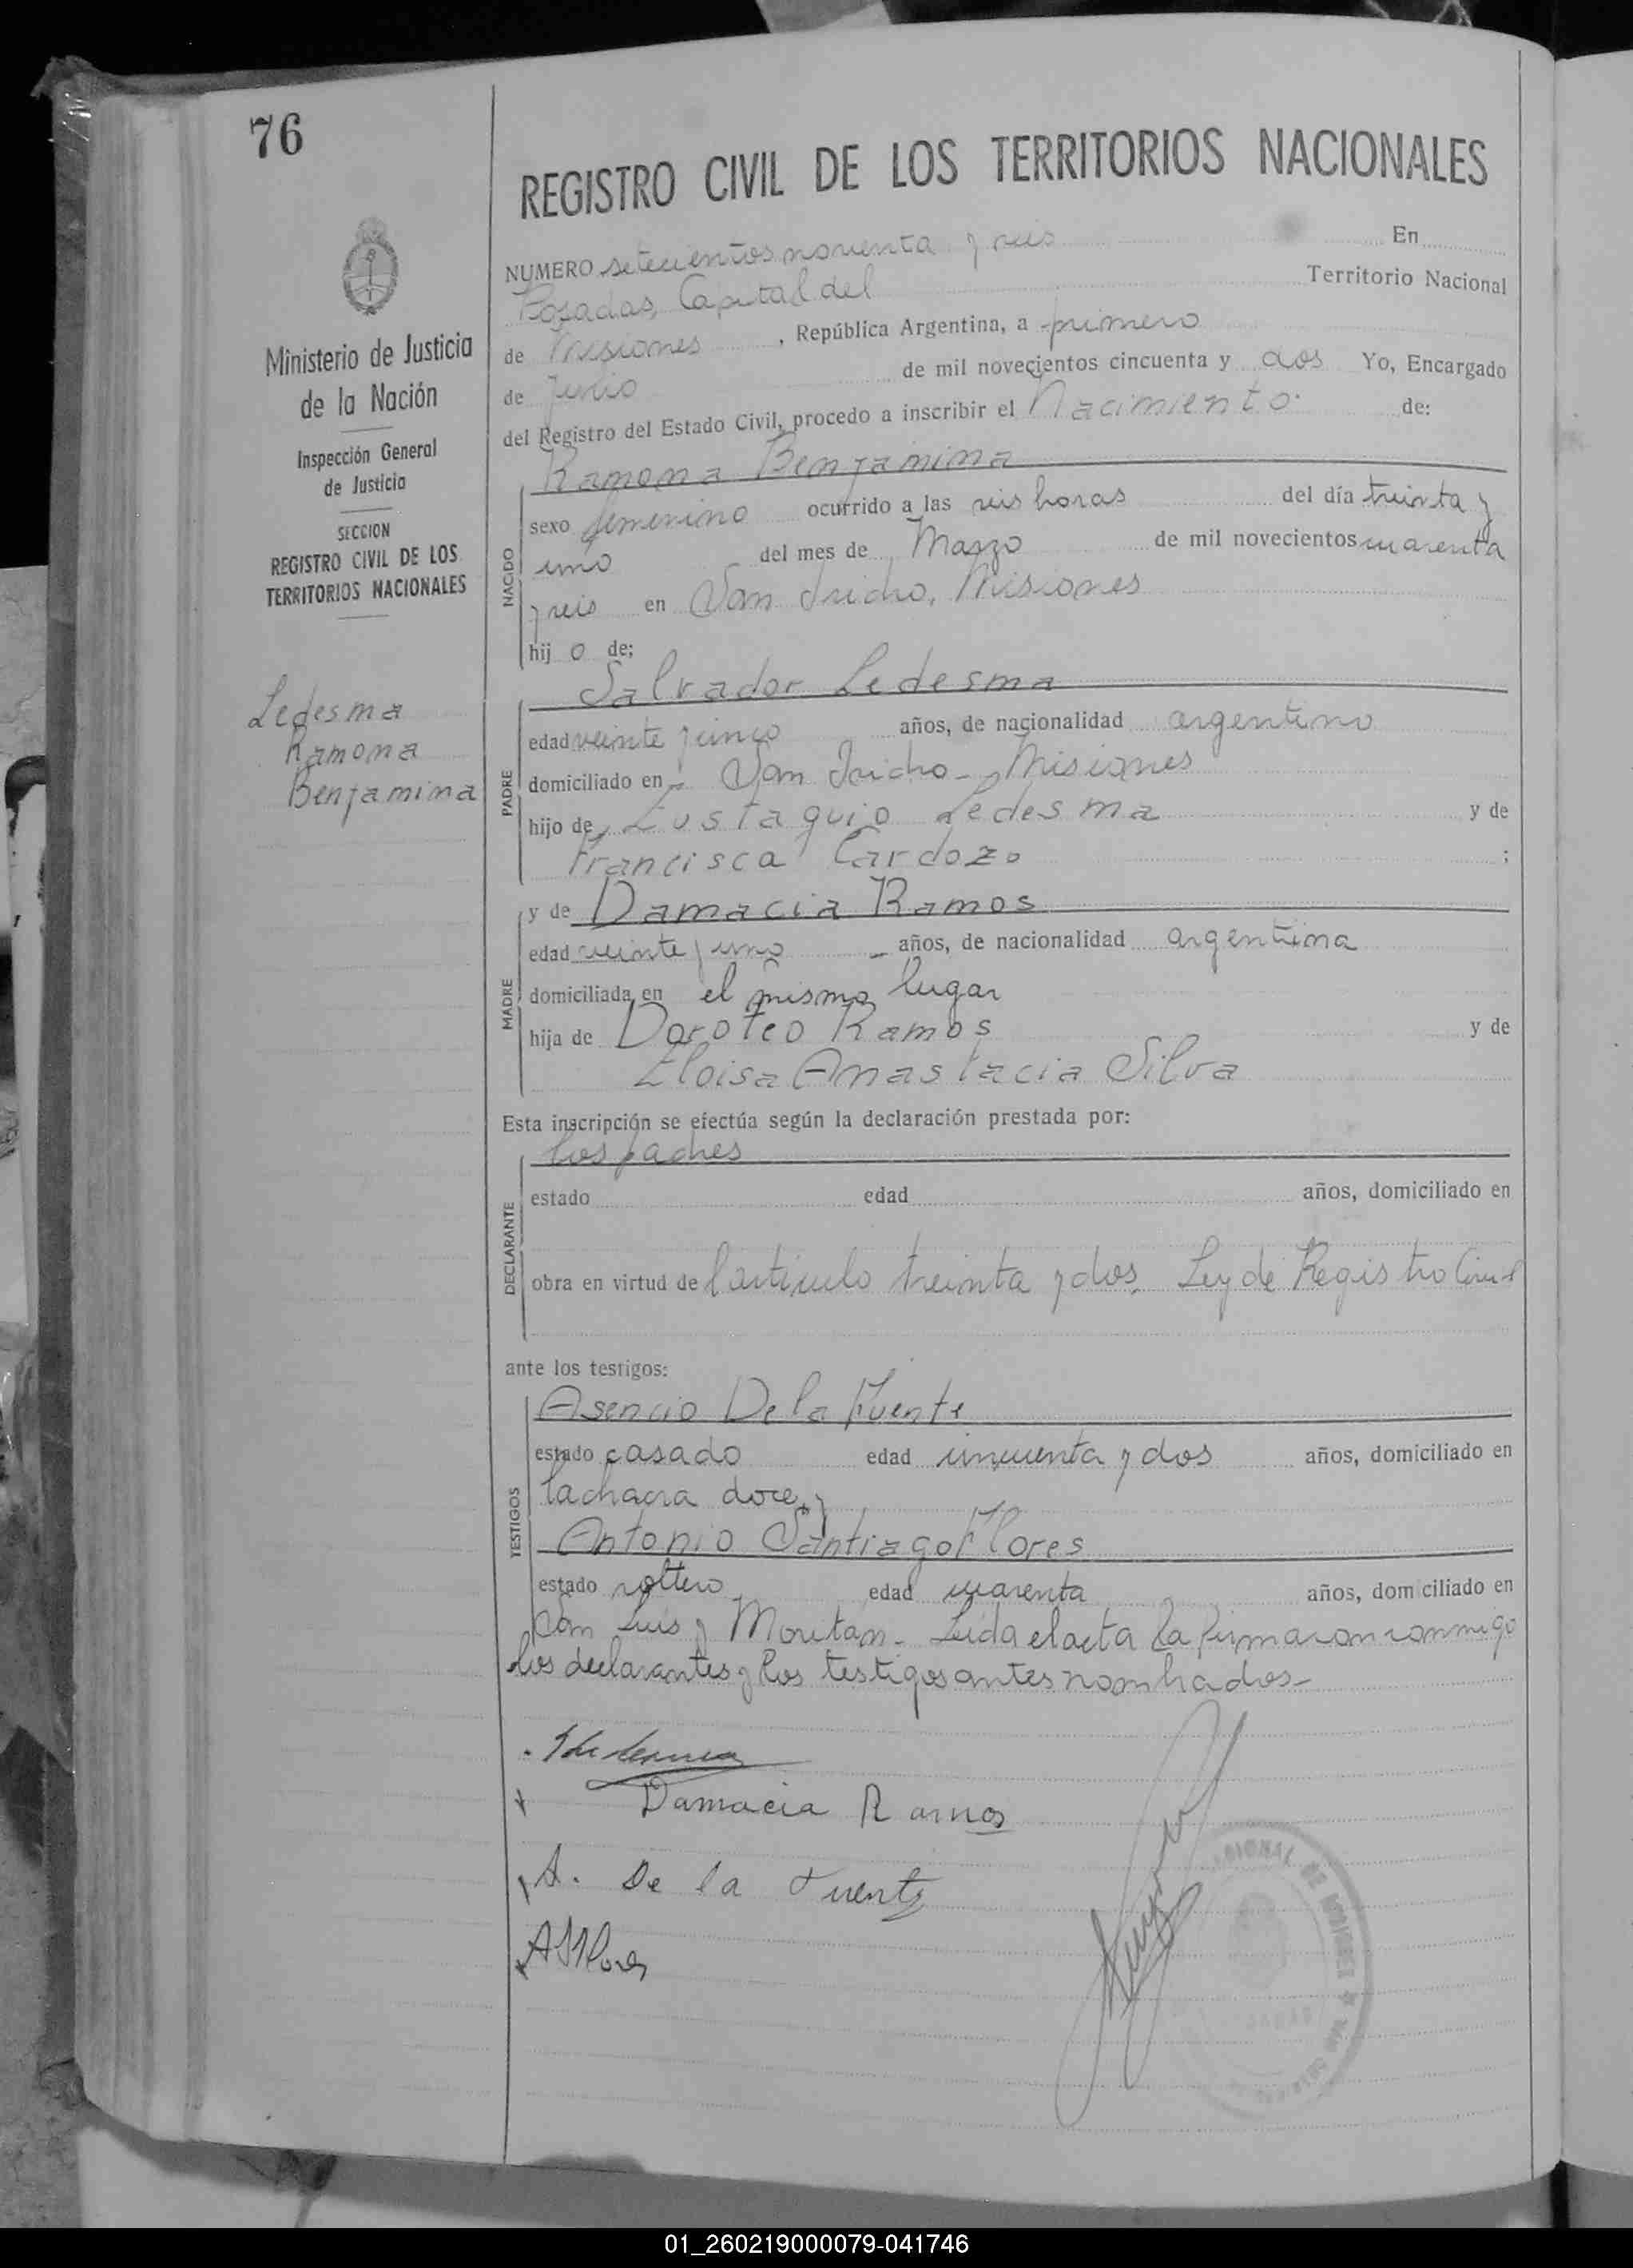 76
REGISTRO CIVIL DE LOS TERRITORIOS NACIONALES
Ministerio de Justicia
de la Nación
Inspección General
de Justicia
SECCION
REGISTRO CIVIL DE LOS
TERRITORIOS NACIONALES
Ledesma
Ramona
Benjamina
NUMERO setecientos noventa y seis En
Posadas, Capital del Territorio Nacional
de Misiones, República Argentina, a primero
de Julio de mil novecientos cincuenta y dos Yo, Encargado
del Registro del Estado Civil, procedo a inscribir el Nacimiento de:
Ramona Benjamina
NACIDO
sexo femenino ocurrido a las seis horas del día treinta y
uno del mes de Marzo de mil novecientos cuarenta
y seis en San Isidro, Misiones
hij o de;
Salvador Ledesma
PADRE
edad veinte y cinco años, de nacionalidad argentino
domiciliado en San Isidro - Misiones
hijo de Eustaquio Ledesma y de
Francisca Cardozo ;
y de Damacia Ramos
MADRE
edad veinte y uno - años, de nacionalidad argentina
domiciliada en el mismo lugar
hija de Doroteo Ramos y de
Eloisa Anastacia Silva
Esta inscripción se efectúa según la declaración prestada por:
los padres
DECLARANTE
estado edad años, domiciliado en
obra en virtud de l artículo treinta y dos, Ley de Registro Civil
ante los testigos:
Asencio De la Fuente
TESTIGOS
estado casado edad cincuenta y dos años, domiciliado en
la chacra doce, y
Antonio Santiago Flores
estado soltero edad cuarenta años, domiciliado en
San Luis y Moritán - Leída el acta la firmaron conmigo
los declarantes y los testigos antes nombrados -
Damacia Ramos
A. De la Fuente
A S Flores
01_260219000079-041746